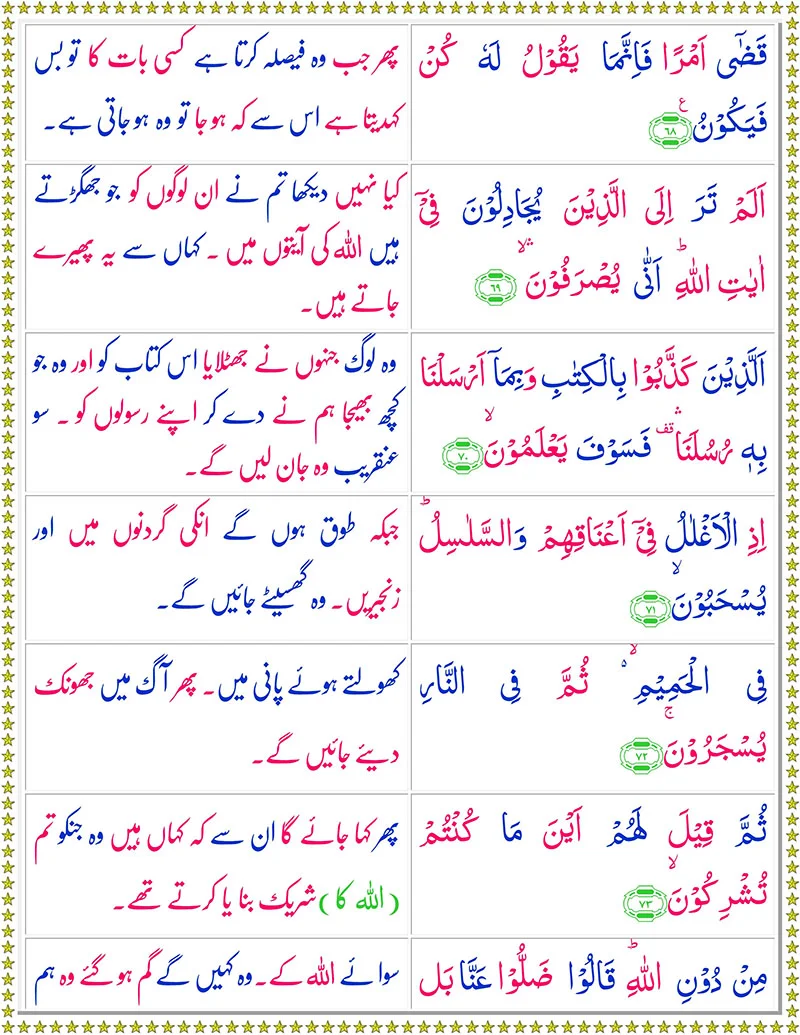 قَضٰۤى اَمْرًا فَاِنَّمَا يَقُوْلُ لَهٗ كُنْ
فَيَكُوْنُ ۧ ٦٨
پھر جب وہ فیصلہ کرتا ہے کسی بات کا تو بس
کہدیتا ہے اس سے کہ ہو جا تو وہ ہو جاتی ہے۔
اَلَمْ تَرَ اِلَى الَّذِيْنَ يُجَادِلُوْنَ فِىْۤ
اٰيٰتِ اللّٰهِ ؕ اَنّٰى يُصْرَفُوْنَ ۛ ۙ ٦٩
کیا نہیں دیکھا تم نے ان لوگوں کو جو جھگڑتے
ہیں اللہ کی آیتوں میں ۔ کہاں سے یہ پھیرے
جاتے ہیں۔
اَلَّذِيْنَ كَذَّبُوْا بِالْكِتٰبِ وَبِمَاۤ اَرْسَلْنَا
بِهٖ رُسُلَنَا ۛ قف فَسَوْفَ يَعْلَمُوْنَ ۙ ٧٠
وہ لوگ جنہوں نے جھٹلایا اس کتاب کو اور وہ جو
کچھ بھیجا ہم نے دے کر اپنے رسولوں کو ۔ سو
عنقریب وہ جان لیں گے۔
اِذِ الْاَغْلٰلُ فِىْۤ اَعْنَاقِهِمْ وَالسَّلٰسِلُ ؕ
يُسْحَبُوْنَ ۙ ٧١
جبکہ طوق ہوں گے انکی گردنوں میں اور
زنجیریں۔ وہ گھسیٹے جائیں گے۔
فِى الْحَمِيْمِ ۙ ثُمَّ فِى النَّارِ
يُسْجَرُوْنَ ۚ ٧٢
کھولتے ہوئے پانی میں۔ پھر آگ میں جھونک
دیئے جائیں گے۔
ثُمَّ قِيْلَ لَهُمْ اَيْنَ مَا كُنْتُمْ
تُشْرِكُوْنَ ۙ ٧٣
پھر کہا جائے گا ان سے کہ کہاں ہیں وہ جنکو تم
(اللہ کا) شریک بنا یا کرتے تھے۔
مِنْ دُوْنِ اللّٰهِ ؕ قَالُوْا ضَلُّوْا عَنَّا بَل
سوائے اللہ کے۔ وہ کہیں گے گم ہو گئے وہ ہم